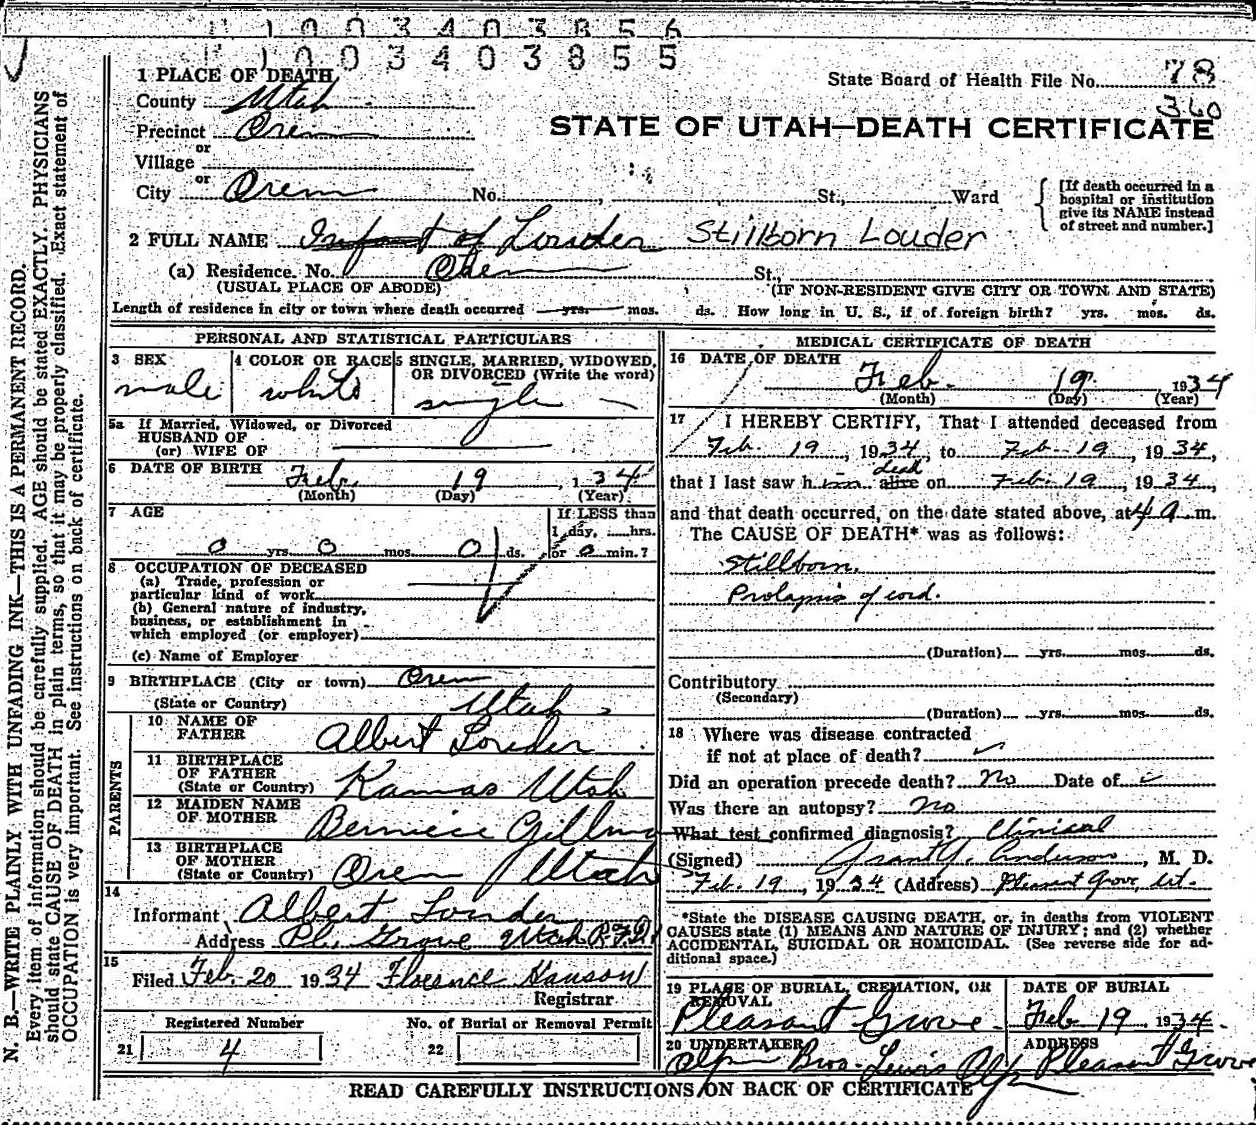 1 0 0 3 4 0 3 8 5 6
1 0 0 3 4 0 3 8 5 5
1 PLACE OF DEATH
State Board of Health File No. 78
360
County Utah
STATE OF UTAH—DEATH CERTIFICATE
Precinct Orem
or
Village
or
City Orem No. , St., Ward
[If death occurred in a
hospital or institution
give its NAME instead
of street and number.]
2 FULL NAME Infant of Louder Stillborn Louder
(a) Residence. No. Orem St.,
(USUAL PLACE OF ABODE) (IF NON-RESIDENT GIVE CITY OR TOWN AND STATE)
Length of residence in city or town where death occurred yrs. mos. ds. How long in U. S., if of foreign birth? yrs. mos. ds.
N. B.—WRITE PLAINLY WITH UNFADING INK—THIS IS A PERMANENT RECORD.
Every item of information should be carefully supplied. AGE should be stated EXACTLY. PHYSICIANS
should state CAUSE OF DEATH in plain terms, so that it may be properly classified. Exact statement of
OCCUPATION is very important. See instructions on back of certificate.
PERSONAL AND STATISTICAL PARTICULARS
3 SEX
male
4 COLOR OR RACE
white
5 SINGLE, MARRIED, WIDOWED,
OR DIVORCED (Write the word)
single
5a If Married, Widowed, or Divorced
HUSBAND OF
(or) WIFE OF
6 DATE OF BIRTH Feb. 19, 1934
(Month) (Day) (Year)
7 AGE
If LESS than
1 day, hrs.
0 yrs. 0 mos. 0 ds. or 0 min.?
8 OCCUPATION OF DECEASED
(a) Trade, profession or
particular kind of work
(b) General nature of industry,
business, or establishment in
which employed (or employer)
(c) Name of Employer
9 BIRTHPLACE (City or town) Orem
(State or Country) Utah
PARENTS
10 NAME OF
FATHER Albert Louder
11 BIRTHPLACE
OF FATHER
(State or Country) Kamas Utah
12 MAIDEN NAME
OF MOTHER Berniece
13 BIRTHPLACE
OF MOTHER
(State or Country) Orem Utah
14
Informant Albert Louder
Address Pl. Grove Utah R.F.D.1
15
Filed Feb. 20 1934 Florence Hanson
Registrar
Registered Number No. of Burial or Removal Permit
21 4 22
MEDICAL CERTIFICATE OF DEATH
16 DATE OF DEATH
Feb. 19 1934
(Month) (Day) (Year)
17 I HEREBY CERTIFY, That I attended deceased from
Feb. 19, 1934, to Feb. 19, 1934,
dead
that I last saw him alive on Feb. 19, 1934,
and that death occurred, on the date stated above, at 4 a.m.
The CAUSE OF DEATH* was as follows:
Stillborn.
Prolapsis of cord.
(Duration) yrs. mos. ds.
Contributory
(Secondary)
(Duration) yrs. mos. ds.
18 Where was disease contracted
if not at place of death?
Did an operation precede death? No Date of
Was there an autopsy? No
What test confirmed diagnosis? Clinical
(Signed) Grant Y. Anderson, M. D.
Feb. 19, 1934 (Address) Pleasant Grove, Ut.
*State the DISEASE CAUSING DEATH, or, in deaths from VIOLENT
CAUSES state (1) MEANS AND NATURE OF INJURY; and (2) whether
ACCIDENTAL, SUICIDAL OR HOMICIDAL. (See reverse side for ad-
ditional space.)
19 PLACE OF BURIAL, CREMATION, OR
REMOVAL
Pleasant Grove
DATE OF BURIAL
Feb 19 1934.
20 UNDERTAKER
Olpin Bros - Lewis Olpin
ADDRESS
Pleasant Grove
READ CAREFULLY INSTRUCTIONS ON BACK OF CERTIFICATE